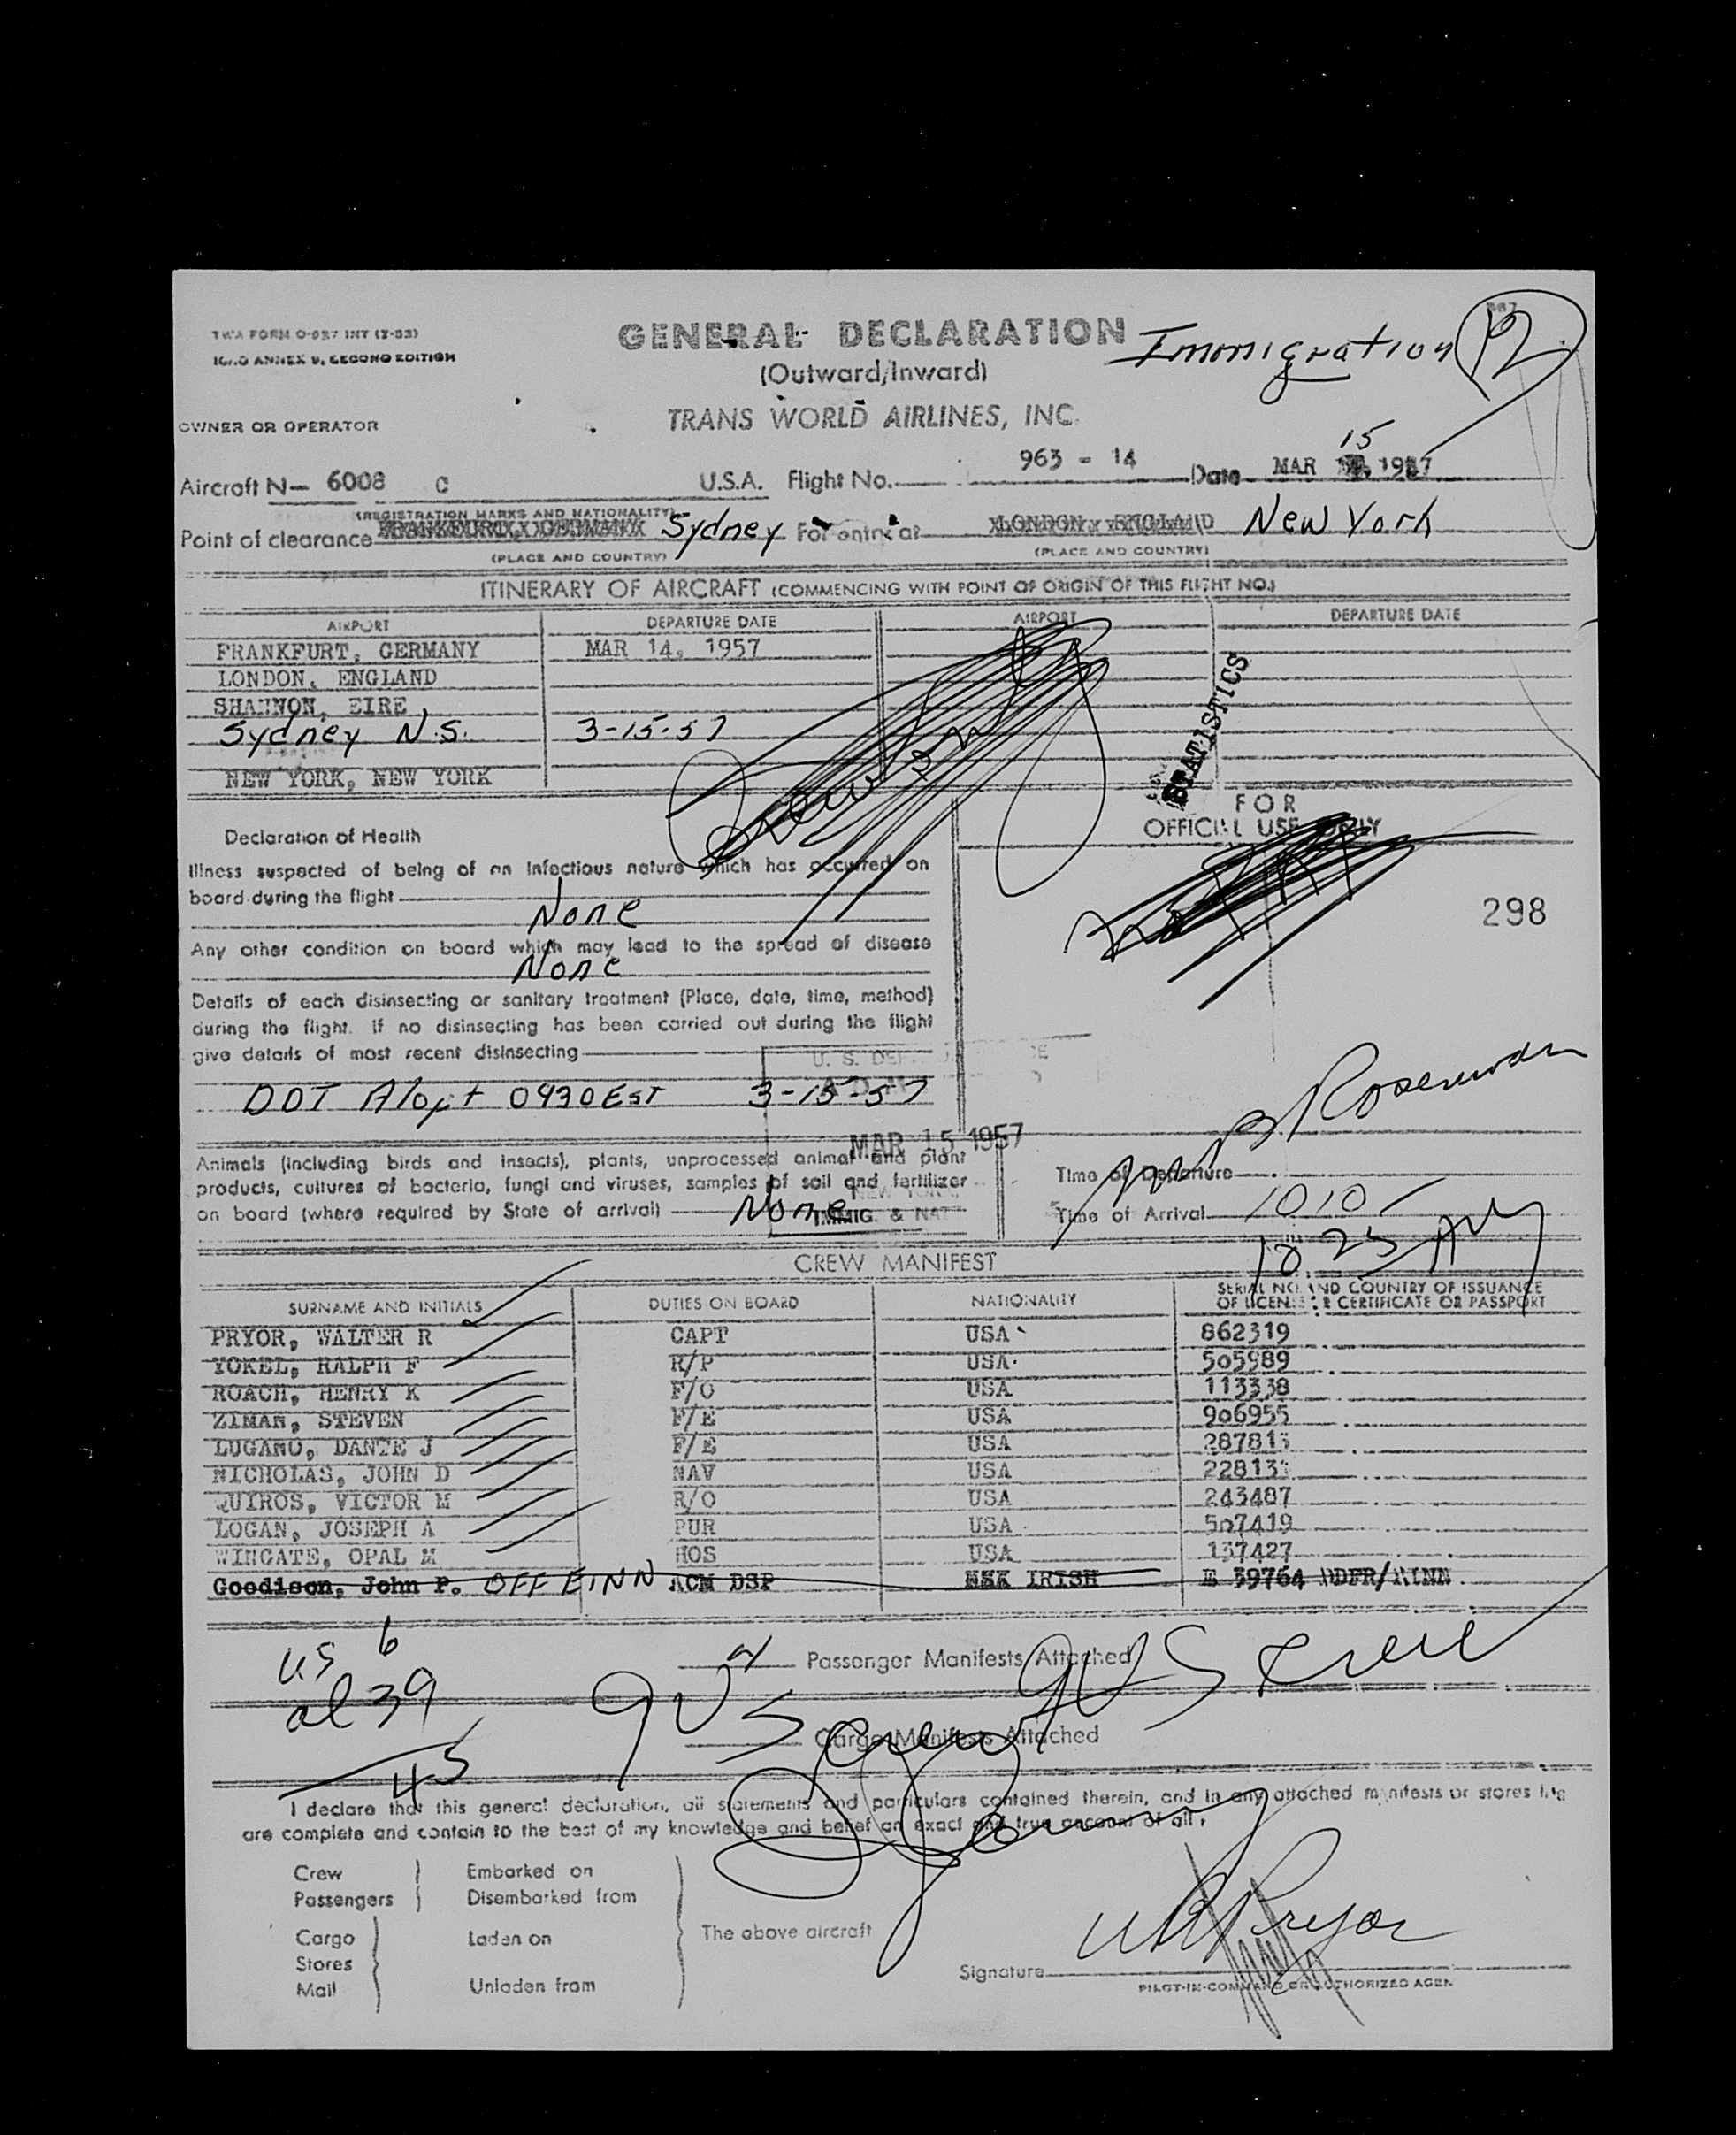 TWA FORM O-987 INT (7-53)
ICAO ANNEX 9, SECOND EDITION
GENERAL DECLARATION
(Outward/Inward)
Immigration 12
OWNER OR OPERATOR
TRANS WORLD AIRLINES, INC.
Aircraft N— 6008 C U.S.A. Flight No. 963 - 14 Date MAR 15, 1957
(REGISTRATION MARKS AND NATIONALITY)
Point of clearance FRANKFURT, GERMANY Sydney For entry at LONDON, ENGLAND New York
(PLACE AND COUNTRY) (PLACE AND COUNTRY)
ITINERARY OF AIRCRAFT (COMMENCING WITH POINT OF ORIGIN OF THIS FLIGHT NO.)
AIRPORT DEPARTURE DATE AIRPORT DEPARTURE DATE
FRANKFURT, GERMANY MAR 14, 1957
LONDON, ENGLAND
SHANNON, EIRE
Sydney N.S. 3-15-57
NEW YORK, NEW YORK
STATISTICS
FOR
OFFICIAL USE ONLY
298
Declaration of Health
Illness suspected of being of an infectious nature which has occurred on
board during the flight
None
Any other condition on board which may lead to the spread of disease
None
Details of each disinsecting or sanitary treatment (Place, date, time, method)
during the flight. If no disinsecting has been carried out during the flight
give details of most recent disinsecting
U. S. DEP
DDT 0430 EST 3-15-57
MAR 15 1957
Animals (including birds and insects), plants, unprocessed animal and plant
products, cultures of bacteria, fungi and viruses, samples of soil and fertilizer
on board (where required by State of arrival) None
NEW YORK,
IMMIG. & NAT
Time of Departure
Time of Arrival 1010
10 25 AM
CREW MANIFEST
SURNAME AND INITIALS DUTIES ON BOARD NATIONALITY SERIAL NO. AND COUNTRY OF ISSUANCE
OF LICENSE OR CERTIFICATE OR PASSPORT
PRYOR, WALTER R CAPT USA 862319
YOKEL, RALPH F R/P USA 505989
ROACH, HENRY K F/O USA 113338
ZIMAN, STEVEN F/E USA 906955
LUGANO, DANTE J F/E USA 287815
NICHOLAS, JOHN D NAV USA 22813
QUIROS, VICTOR M R/O USA 243487
LOGAN, JOSEPH A PUR USA 507419
WINGATE, OPAL M HOS USA 137427
Goodison, John P. OFF EINN ACM DSP IRISH E 39764
US 6
al 39
45
4 Passenger Manifests Attached
9 US Crew
9 US
Crew
Cargo Manifests Attached
I declare that this general declaration, all statements and particulars contained therein, and in any attached manifests or stores list
are complete and contain to the best of my knowledge and belief an exact and true account of all
Crew Embarked on
Passengers Disembarked from
Cargo Laden on The above aircraft
Stores
Mail Unladen from
W R Pryor
Signature
PILOT-IN-COMMAND OR AUTHORIZED AGENT